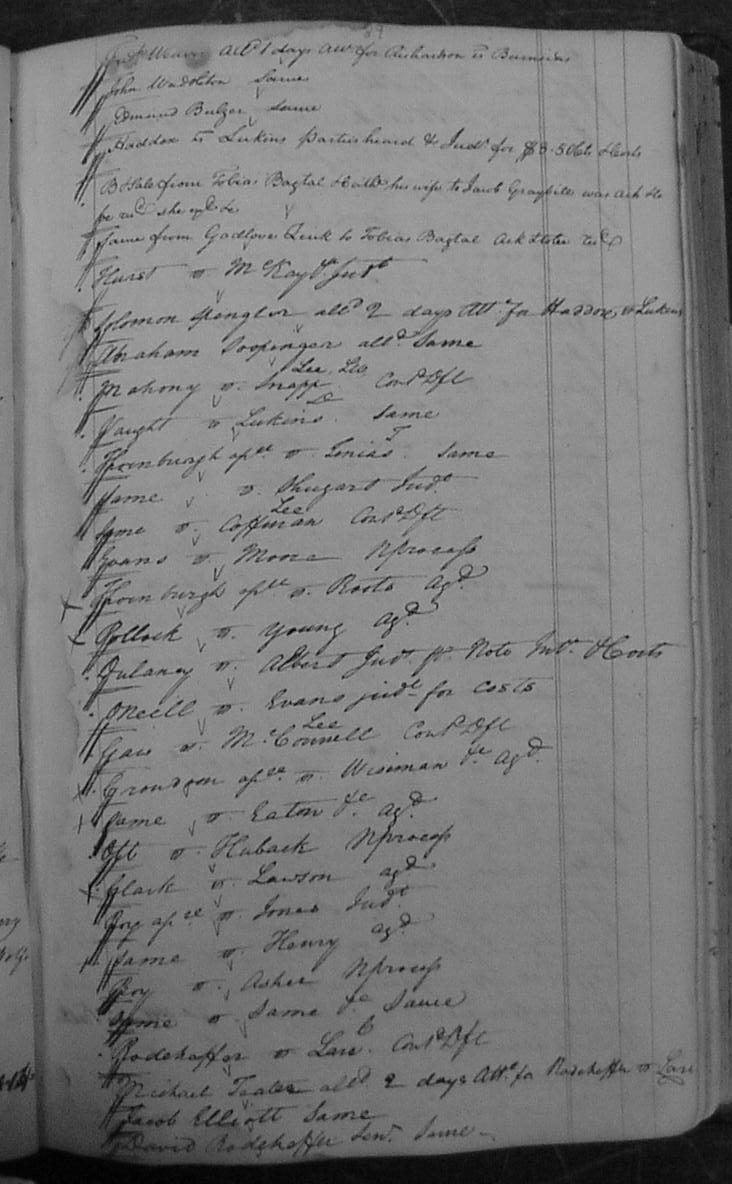 Weaver all.d 1 days att.e for Richardson vs Burnsides
John same
Edmund Bulger same
Haddox vs Lukins parties heard & Jud.t for $3.50Cts & Costs
B & Sale from Tobias Bagtal & Cath.e his wife to Jacob Graybill was ack &c
be rec.d she ex.d &c
same from Gadlove to Tobias Bagtal Ack & to be rec.d
Hurst vs McKay &c Jud.t
Solomon Spengler all.d 2 days Att.e for Haddox vs Lukins
Abraham Soopinger all.d Same
Mahony vs Snapp Lee, Con.d Dft
Vaught vs Lukins. Same
Thornburgh ap.ee vs same
same vs. Shugart Jud.t
Same vs. Coffman Lee Con.d Dft
Evans vs Moore Nprocess
Thornburgh ap.ee vs. Roots ag.d
Pollock vs. Young ag.d
Dulaney vs. Albert Jud.t pr. Note Int.t & Costs
ONeill vs. Evans jud.t for costs
vs. McConnell Lee Con.d Dft
ap.ee vs. Wiseman &c ag.d
same vs. Eaton &c ag.d
Ott vs. Huback Nprocess
Clark vs. Lawson ag.d
Roy ap.ee vs Jones Jud.t
same vs. Henry ag.d
Roy vs. Asher Nprocess
same vs same &c same
Rodehaffer vs Lare. Con.d Dft
Michael all.d 2 days Att.e for Rodeheffer vs Lare
Jacob Elliott Same
David Rodeheffer Sen.r Same